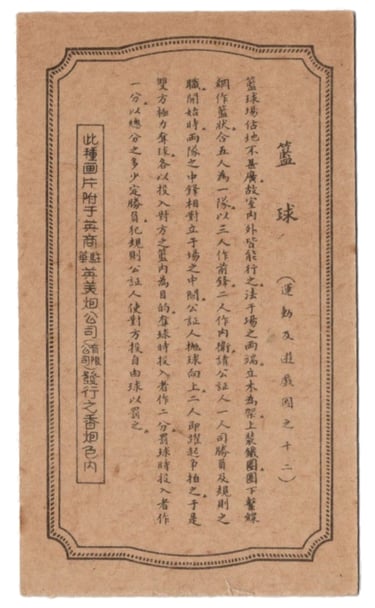 籃球
(運動及遊戲圖之十二)
籃球場佔地不甚廣故室內外皆能行之法于場之兩端立木為架上裝鐵圈圈下繫線
網作籃狀合五人為一隊以三人作前鋒二人作內衛請公証人一人司勝負及規則之
職開始時兩隊之中鋒相對立于場之中間公証人拋球向上二人即躍起爭拍之于是
雙方極力奪球各以投入對方之籃內為目的奪球時投入者作二分罰球時投入者作
一分以總分之多少定勝負犯規則公証人使對方投自由球以罰之
此種畫片附于英商駐華英美烟公司(有限公司)發行之香烟包內